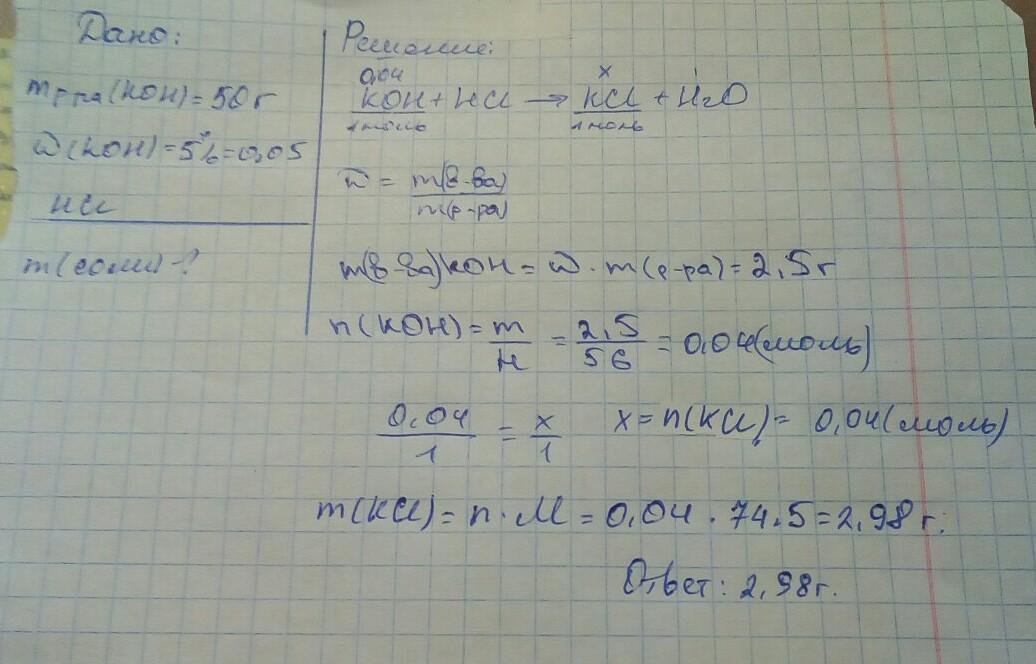 Дано:
mр-ра(KOH)=50г
ω(KOH)=5%=0,05
HCl
m(соли)-?
Решение:
0,04 x
KOH+HCl → KCl + H2O
1моль 1моль
ω = m(в-ва)/m(р-ра)
m(в-ва)KOH = ω · m(р-ра) = 2,5г
n(KOH) = m/M = 2,5/56 = 0,04(моль)
0,04/1 = x/1 x = n(KCl) = 0,04(моль)
m(KCl) = n · M = 0,04 · 74,5 = 2,98 г.
Ответ: 2,98г.